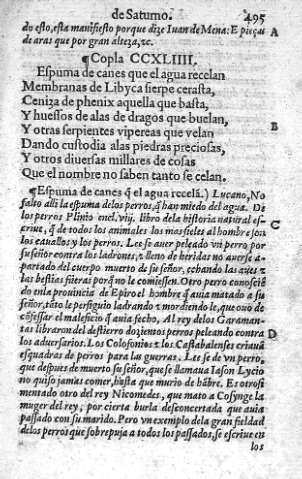 de Saturno. 495
do esto, esta manifiesto porque dize Iuan de Mena: E pieças A
de aras que por gran alteza, &c.
¶Copla CCXLIIII.
Espuma de canes que el agua recelan
Membranas de Libyca sierpe cerasta,
Ceniza de phenix aquella que basta,
Y huessos de alas de dragos que buelan, B
Y otras serpientes vipereas que velan
Dando custodia alas piedras preciosas,
Y otros diuersas millares de cosas
Que el nombre no saben tanto se celan.
¶Espuma de canes q̃ el agua recelã.) Lucano, No
falto alli la espuma delos perros, q̃ han miedo del agua. De
los perros Plinio enel. viij. libro dela historia natural es- C
criue, q̃ de todos los animales los mas fieles al hombre son
los cauallos y los perros. Lee se auer peleado vn perro por
su señor contra los ladrones, z lleno de heridas no auerse a-
partado del cuerpo muerto de su señor, echando las aues z
las bestias fieras porq̃ no le comiessen. Otro perro conoscio
do enla prouincia de Epiro el hombre q̃ auia matado a su
señor, tãto le persiguio ladrando z mordiendo le, que ouo de
cõfessar el maleficio q̃ auia fecho, Al rey delos Garaman-
tas libraron del destierro dozientos perros peleando contra D
los aduersarios. Los Colofonios z los Castabalenses criauã
esquadras de perros para las guerras. Lee se de vn perro,
que despues de muerto su señor, que se llamaua Iason Lycio
no quiso jamas comer, hasta que murio de hãbre. Es otrosi
mentado otro del rey Nicomedes, que mato a Cosynge la
muger del rey, por cierta burla desconcertada que auia
passado con su marido. Pero vn exemplo dela gran fieldad
delos perros que sobrepuja a todos los passados, se escriue en
los